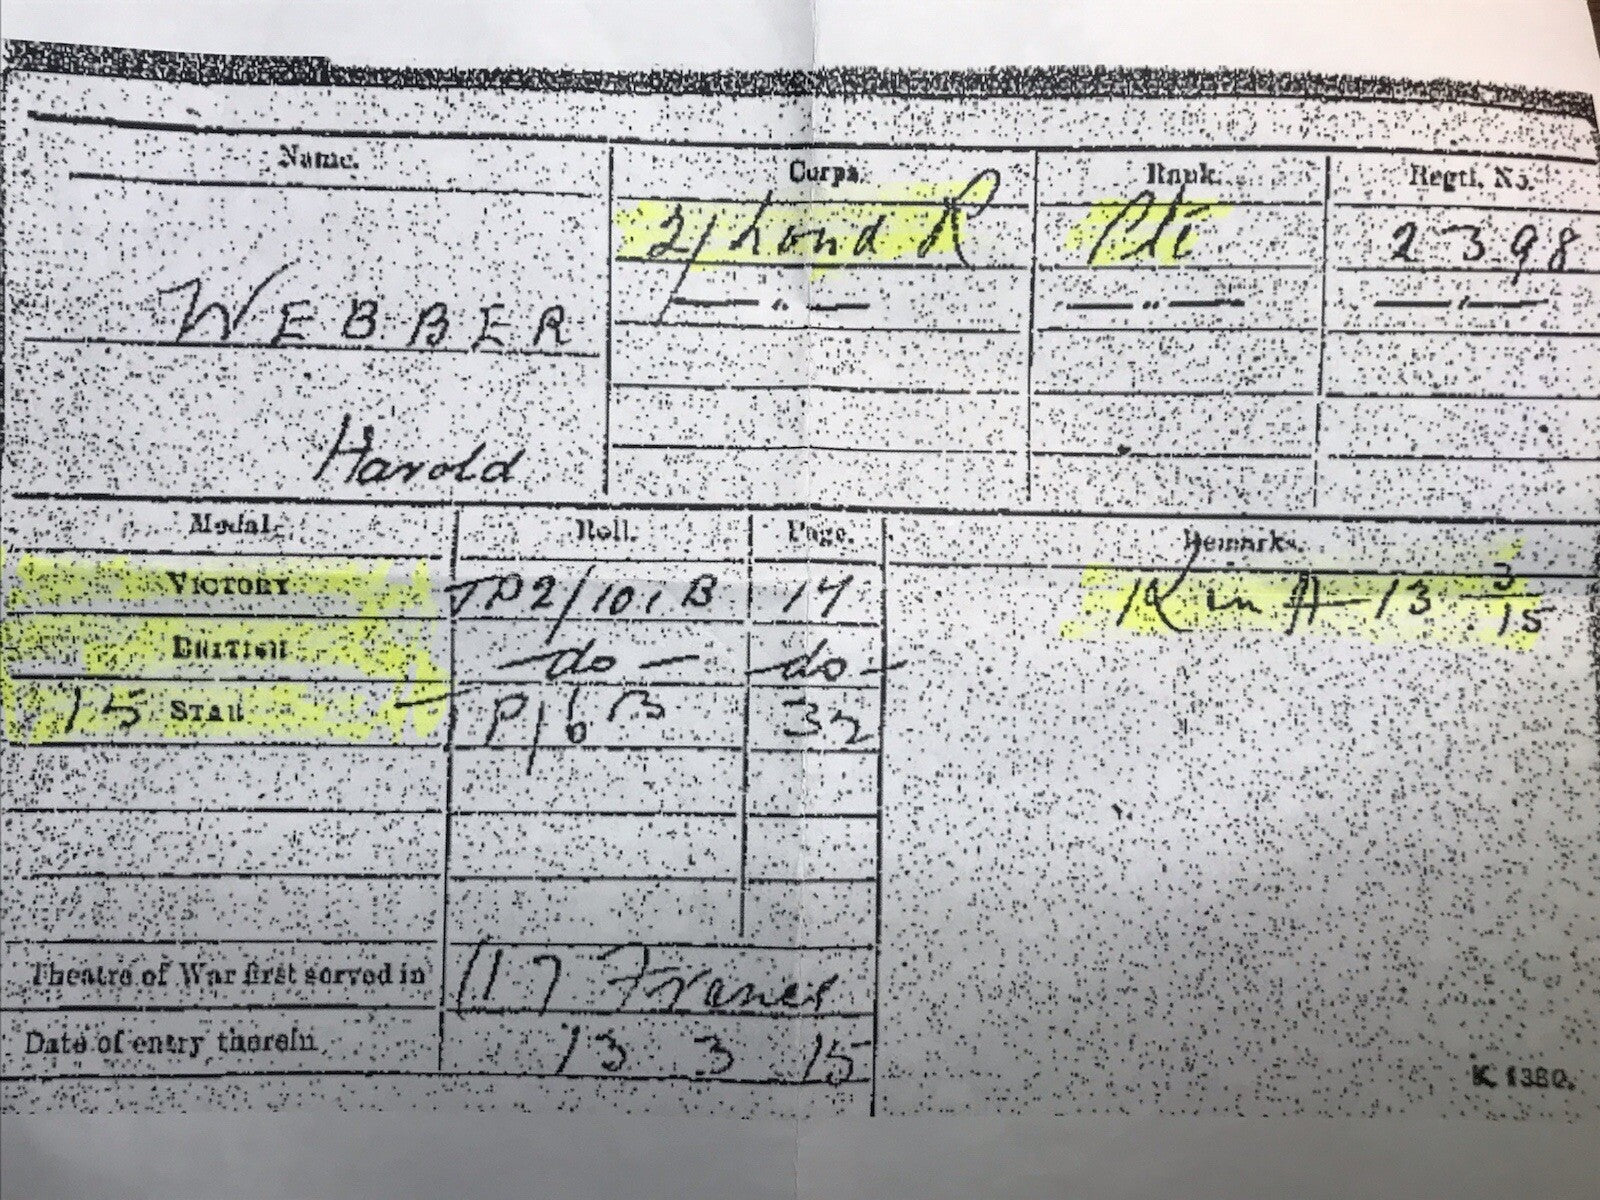 Name. Corps. Rank. Regtl. No.
2/ Lond R Pte 2398
— " — — " — — " —
WEBBER
Harold
Medal. Roll. Page. Remarks.
VICTORY TP2/101B 14 K in A - 13 3/15
BRITISH — do — — do —
15 STAR P/6 B 32
Theatre of War first served in (1) France
Date of entry therein 13 3 15
K. 1380.